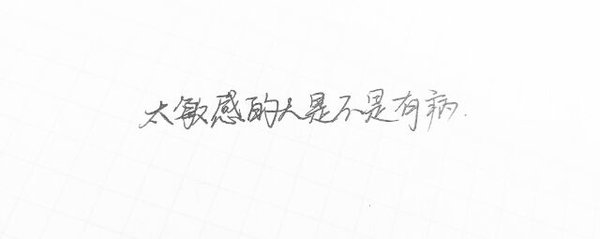 太敏感的人是不是有病.